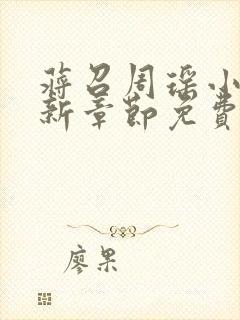 蒋召周瑶小
新章节免费
廖果